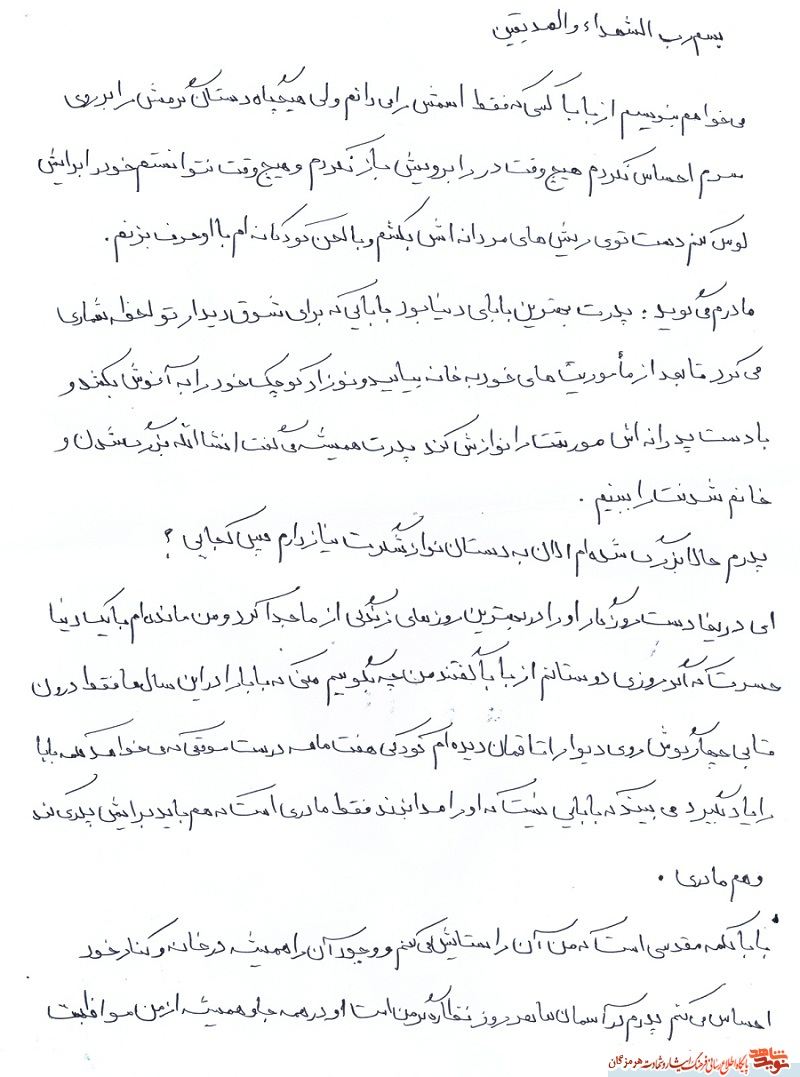 بسم رب الشهداء والصدیقین
می خواهم بنویسم از بابا کسی که فقط اسمش را می دانم ولی هیچگاه دستان گرمش را بر روی
سرم احساس نکردم هیچ وقت در را برویش باز نکردم و هیچ وقت نتوانستم خود را برایش
لوس کنم دست توی ریش های مردانه اش بکشم و با لحن کودکانه ام با او حرف بزنم.
مادرم می گوید: پدرت بهترین بابای دنیا بود بابایی که برای شوق دیدار تو لحظه شماری
می کرد تا بعد از مأموریت های خود به خانه بیایید و نوزاد کوچک خود را به آغوش بکشد و
با دست پدرانه اش صورتت را نوازش کند پدرت همیشه می گفت انشاالله بزرگ شدن و
خانم شدنت را ببینیم.
پدرم حالا بزرگ شده ام الان به دستان نوازشگرت نیاز دارم پس کجایی؟
ای دریغا دست روزگار او را در بهترین روزهای زندگی از ما جدا کرد و من مانده ام با یک دنیا
حسرت که اگر روزی دوستانم از بابا گفتند من چه بگویم منی که بابا را در این سال ها فقط درون
قابی چهارگوش روی دیوار اتاقمان دیده ام کودکی هفت ماهه درست موقعی که می خواهد کلمه بابا
را یاد بگیرد می بیند که بابایی نیست که او را صدا بزند فقط مادری است که هم باید برایش پدری کند
و هم مادری.
بابا کلمه مقدسی است که من آن را ستایش می کنم و وجود آن را همیشه در خانه و کنار خود
احساس می کنم پدرم در آسمان ها هر روز نظاره گر من است او در همه جا و همیشه از من مواظبت
نوید شاهد پایگاه اطلاع رسانی فرهنگ ایثار و شهادت هرمزگان